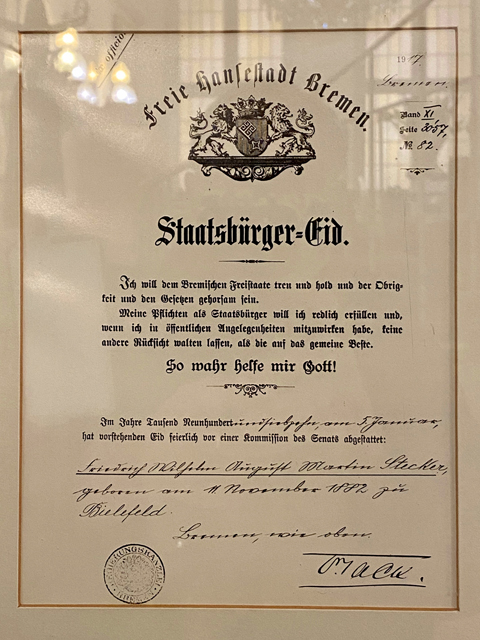 officio
1917.
Freie Hansestadt Bremen.
Bremen,
Band XI,
Seite 2057,
No. 82.
Staatsbürger=Eid.
Ich will dem Bremischen Freistaate treu und hold und der Obrig-
keit und den Gesetzen gehorsam sein.
Meine Pflichten als Staatsbürger will ich redlich erfüllen und,
wenn ich in öffentlichen Angelegenheiten mitzuwirken habe, keine
andere Rücksicht walten lassen, als die auf das gemeine Beste.
So wahr helfe mir Gott!
Im Jahre Tausend Neunhundertundsiebzehn, am 5 Januar,
hat vorstehenden Eid feierlich vor einer Kommission des Senats abgestattet:
Friedrich Wilhelm August Martin Stecker,
geboren am 11 November 1882 zu
Bielefeld.
Bremen, wie oben.
REGIERUNGSKANZLEI
BREMEN